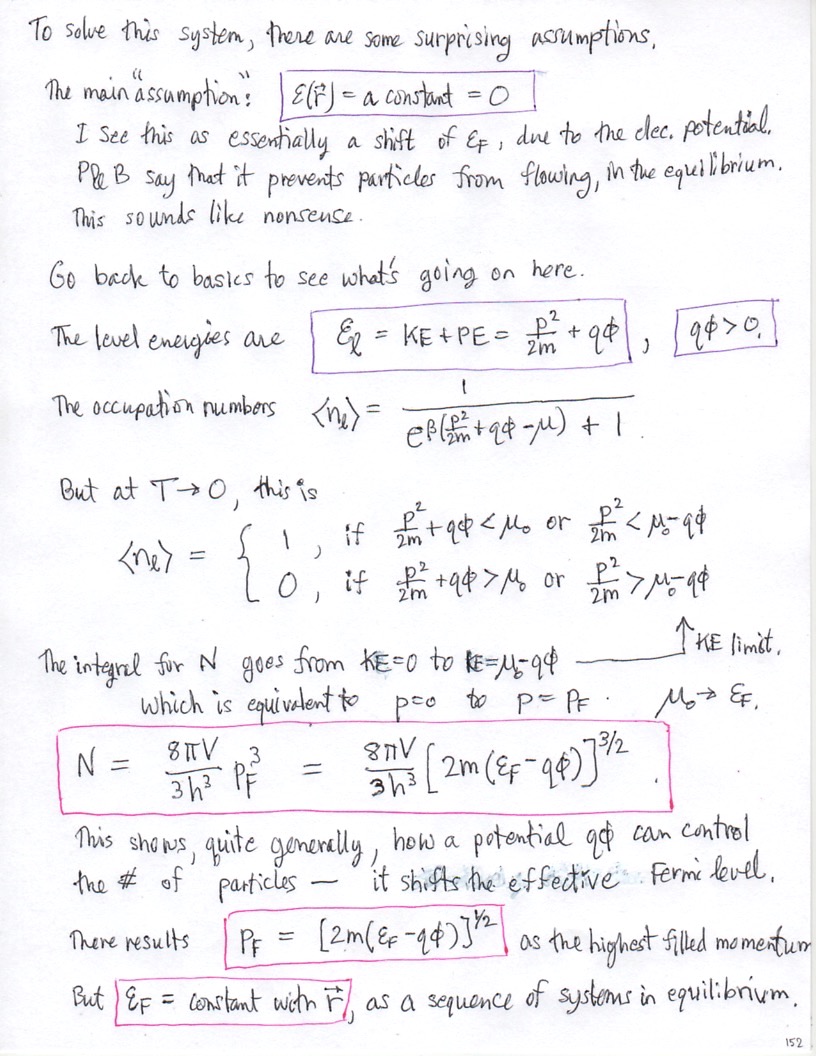 To solve this system, there are some surprising assumptions.
The main "assumption": ε(r⃗) = a constant = 0
I see this as essentially a shift of ε_F, due to the elec. potential.
P&B say that it prevents particles from flowing, in the equilibrium.
This sounds like nonsense.
Go back to basics to see what's going on here.
The level energies are ε_ℓ = KE + PE = p²/2m + qϕ , qϕ > 0.
The occupation numbers ⟨n_ℓ⟩ = 1 / (e^{β(p²/2m + qϕ - μ)} + 1) .
But at T → 0, this is
⟨n_ℓ⟩ = { 1 , if p²/2m + qϕ < μ₀ or p²/2m < μ₀ - qϕ
0 , if p²/2m + qϕ > μ₀ or p²/2m > μ₀ - qϕ
↑ KE limit.
The integral for N goes from KE=0 to KE=μ₀-qϕ
which is equivalent to p=0 to p = p_F . μ₀ → ε_F.
N = 8πV/3h³ p_F³ = 8πV/3h³ [2m(ε_F - qϕ)]^{3/2} .
This shows, quite generally, how a potential qϕ can control
the # of particles — it shifts the effective Fermi level.
There results p_F = [2m(ε_F - qϕ)]^{1/2} as the highest filled momentum
But ε_F = constant with r⃗, as a sequence of systems in equilibrium.
152